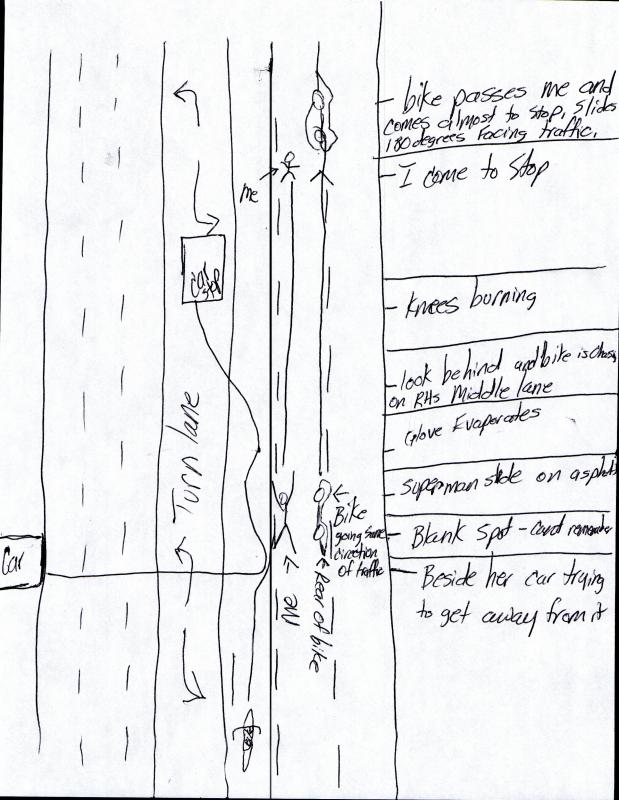 bike passes me and
comes almost to stop, slides
180 degrees facing traffic.
me
I come to Stop
Car
Knees burning
look behind and bike is
on RHs Middle lane
Turn lane
Glove Evaporates
superman slide on asphalt
Bike
going same
direction
of traffic
Blank spot - cant remember
Car
me
Rear of bike
Beside her car trying
to get away from it